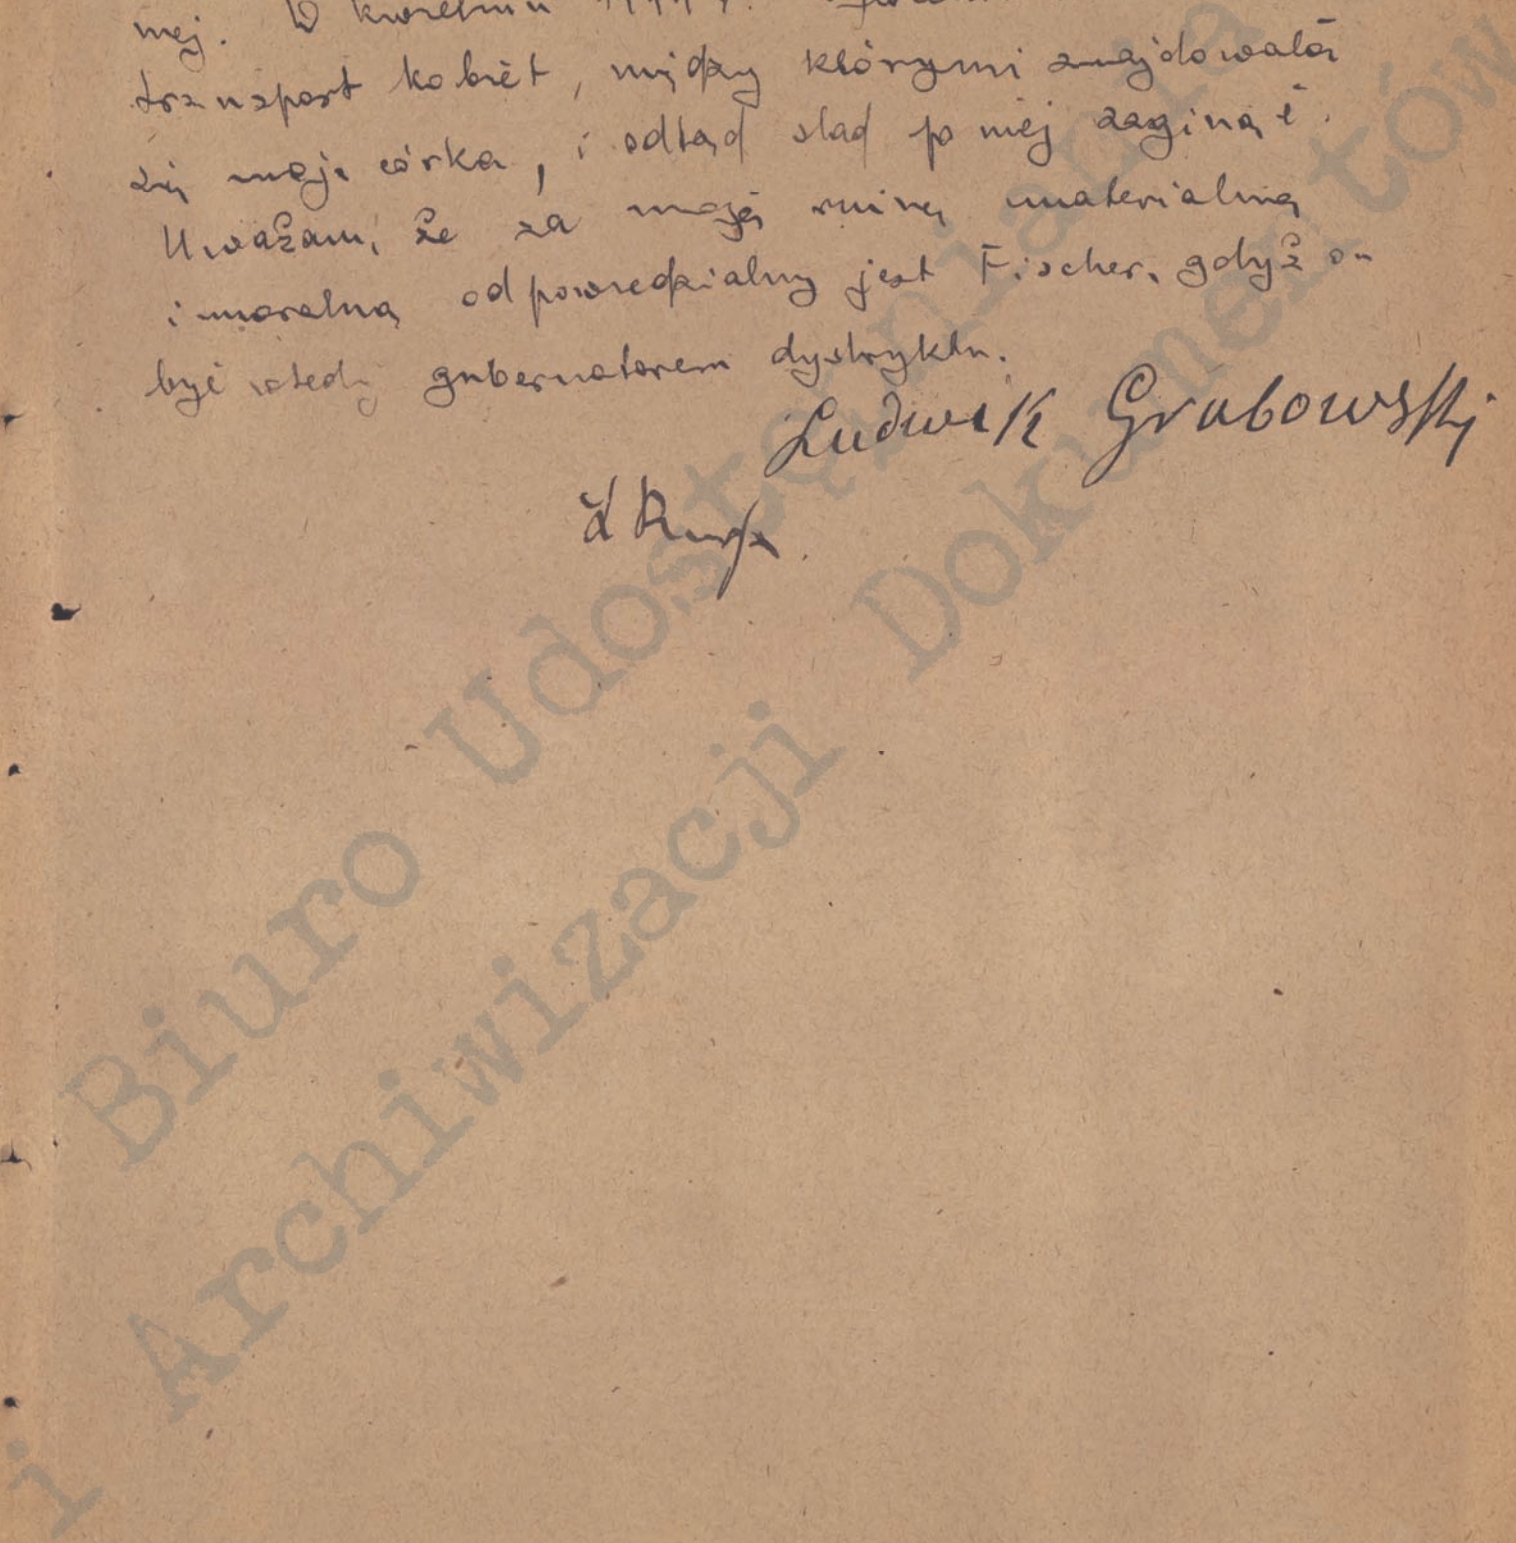 mej. W kwietniu 1944 r.
transport kobiet, między którymi znajdowała
się moja córka, i odtąd ślad po niej zaginął.
Uważam, że za moją ruinę materialną
i moralną odpowiedzialny jest Fischer, gdyż on
był wtedy gubernatorem dystryktu.
Ludwik Grabowski
Biuro Udostępniania
i Archiwizacji Dokumentów